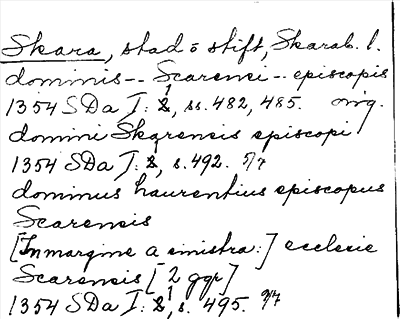 Skara, stad o stift, Skarab. l.
dominis -- Scarensi -- episcopis
1354 SDa I: 1, ss. 482, 485. orig.
domini Skarensis episcopi
1354 SDa I: 1, s. 492.
dominus laurentius episcopus
Scarensis
[In margine a sinistra:] ecclesie
Scarensis [2 ggr]
1354 SDa I: 1, s. 495.